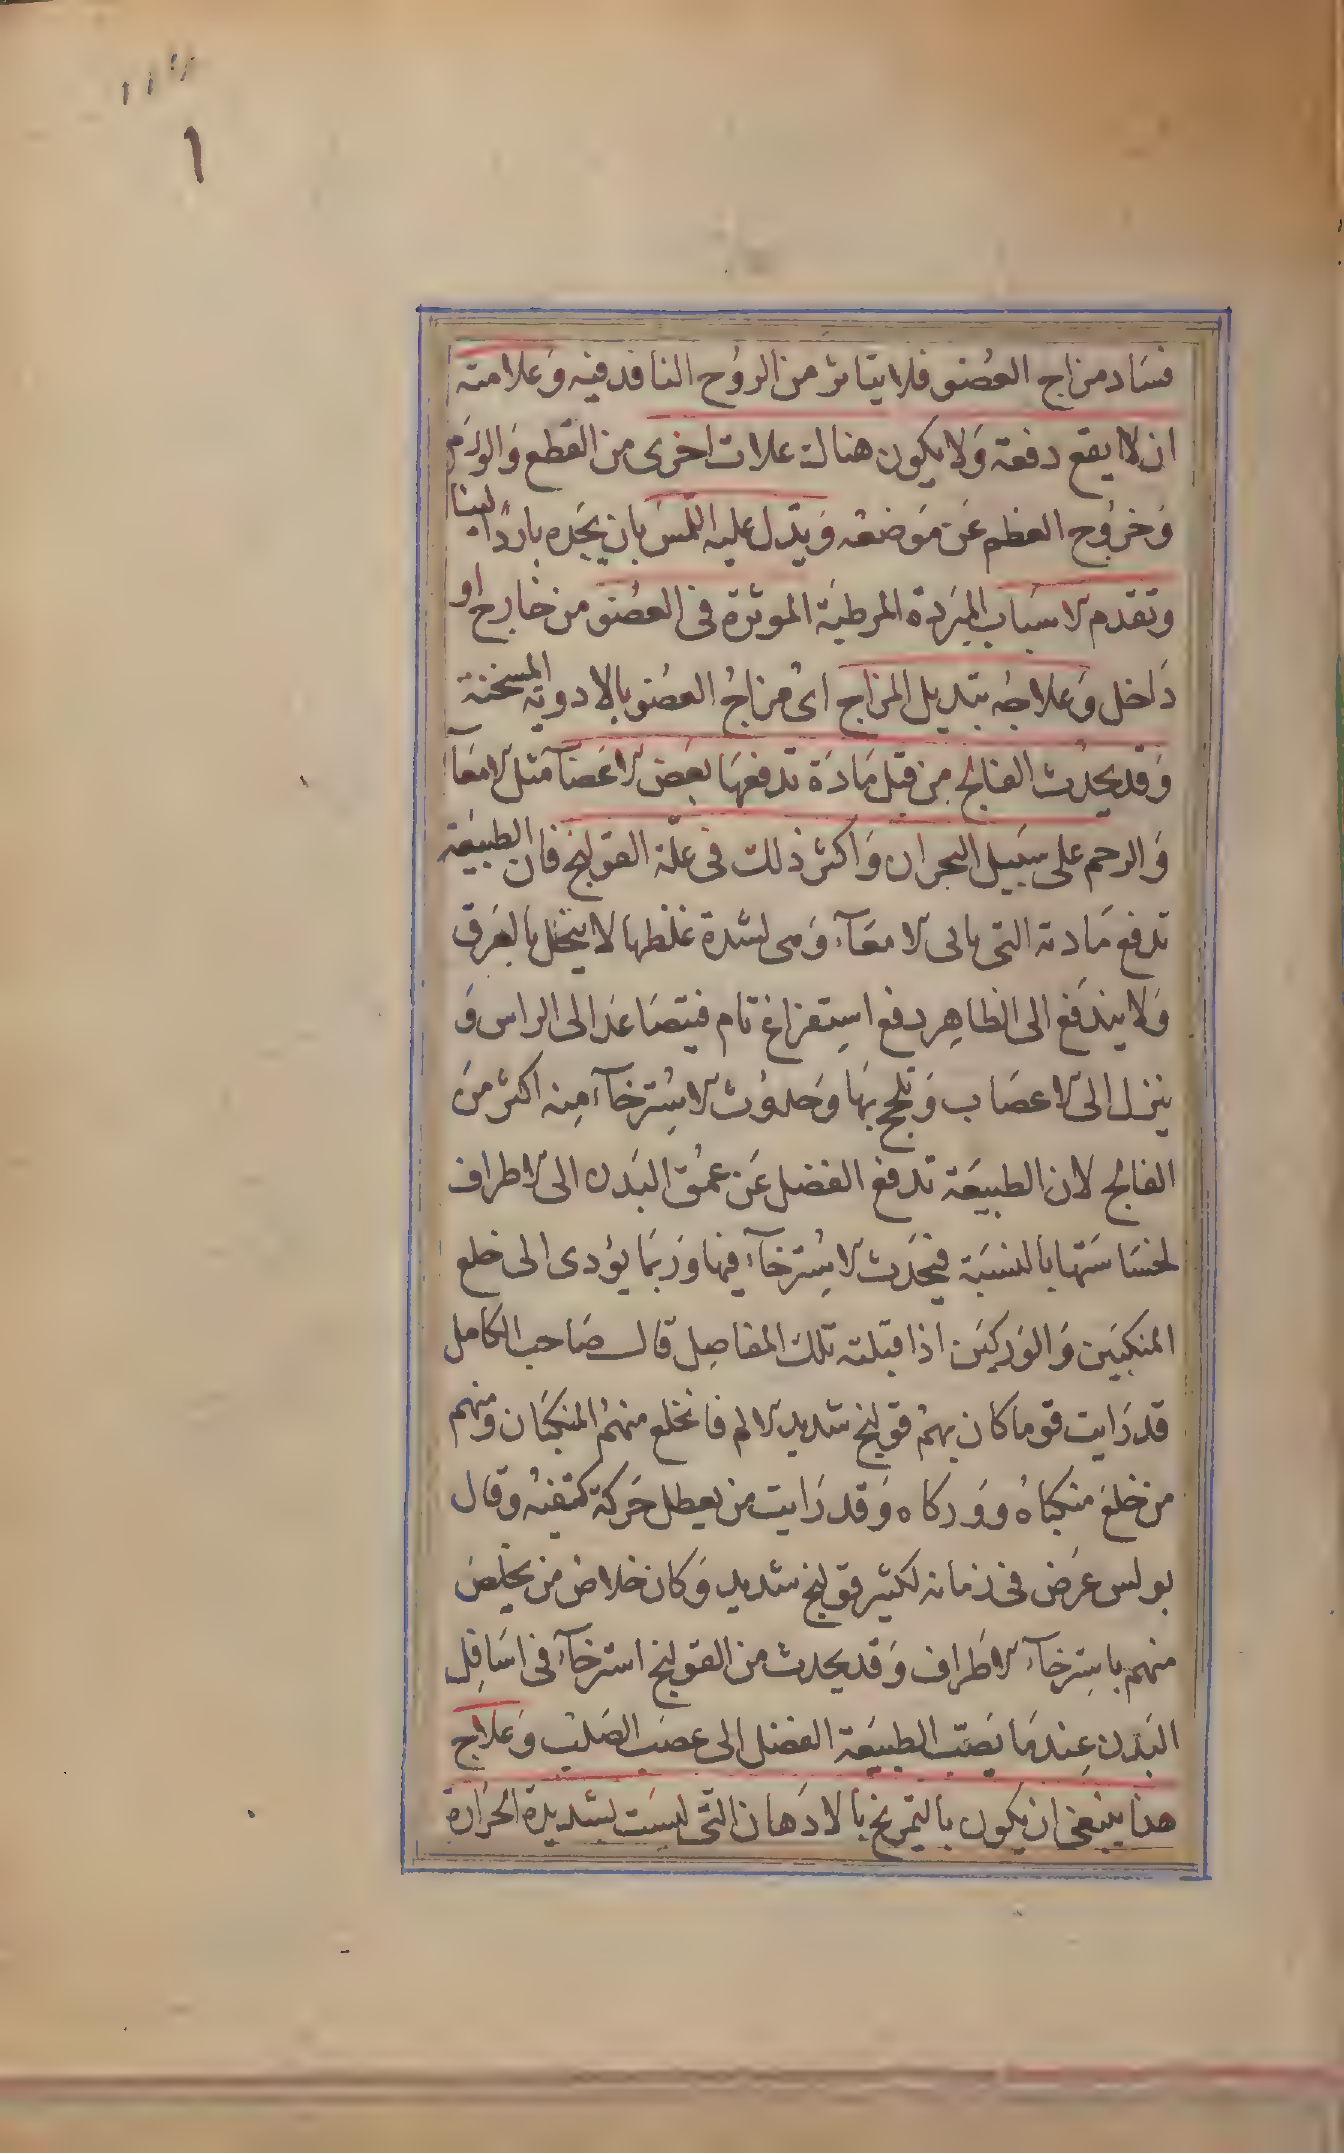 ١
فسَاد مزاج العضو فلا يتاثر من الروُح النافد فيه وَعلامته
ان لا يقع دفعة وَلا يكون هناك علات اخرى من القطع وَالورَم
وَخروُج العظم عَن مَوضعه وَيدل عليه اللمسَ بان يجَده باردًا لينا
وتقدم الاسبَاب المبَردة المرطبَة الموثرة فى العضو من خارج او
دَاخل وَعلاجُه بتبديل المزاج اىْ مزاجُ العضو بالادوية المسخنة
وَقد يحدُث الفالج مِن قبل مَادَة تدفعهَا بعَض الاعَضآ مثل الامعَآ
وَالرحم على سَبيل البحران وَاكثر ذلك فى علّة القولنج فان الطبيعَة
تدفع مَادته التى بالى الامعَآء وَهى لشدة غلظها لا يتحَلل بالعَرق
وَلا يندَفع الى الظاهِر دفع استفراغ تام فيتصَاعَد الى الراس وَ
ينزل الى الاعصَاب وَتلحج بهَا وَحدوُث الاسُترخَآء مِنه اكثر منَ
الفالج لان الطبيعَة تدفع الفضل عَن عمُق البَدن الى الاطراف
لخسَاسَتها بالنسبَة فيحدَث الاسُترخآء فيها وَربمَا يؤدى الى خلع
المنكبَين وَالوَركيَن اذا قبلته تلك المفاصِل قال صَاحب الكامل
قد رَايت قوما كان بهمُ قولنج شديد الالم فانخلع منهمُ المنكبَان ومنهم
من خلعَ منكبَاهُ ووَركاه وَقد رَايت من يعطل حَركة كتفيهُ وقال
بولس عرَض فى زمانه لكثير قولنج شديد وَكان خلاص من يخلصَ
منهم باسِترخآء الاطَراف وَقد يحدث من القولنج استرخآء فى اسَافِل
البَدن عِندمَا يصَبّ الطبيعَة الفضل الى عصَب الصَلبْ وَعلاج
هذا ينبغى ان يكون بالتمريخ بالادَهان التّى ليسَت بشديدة الحَرارة